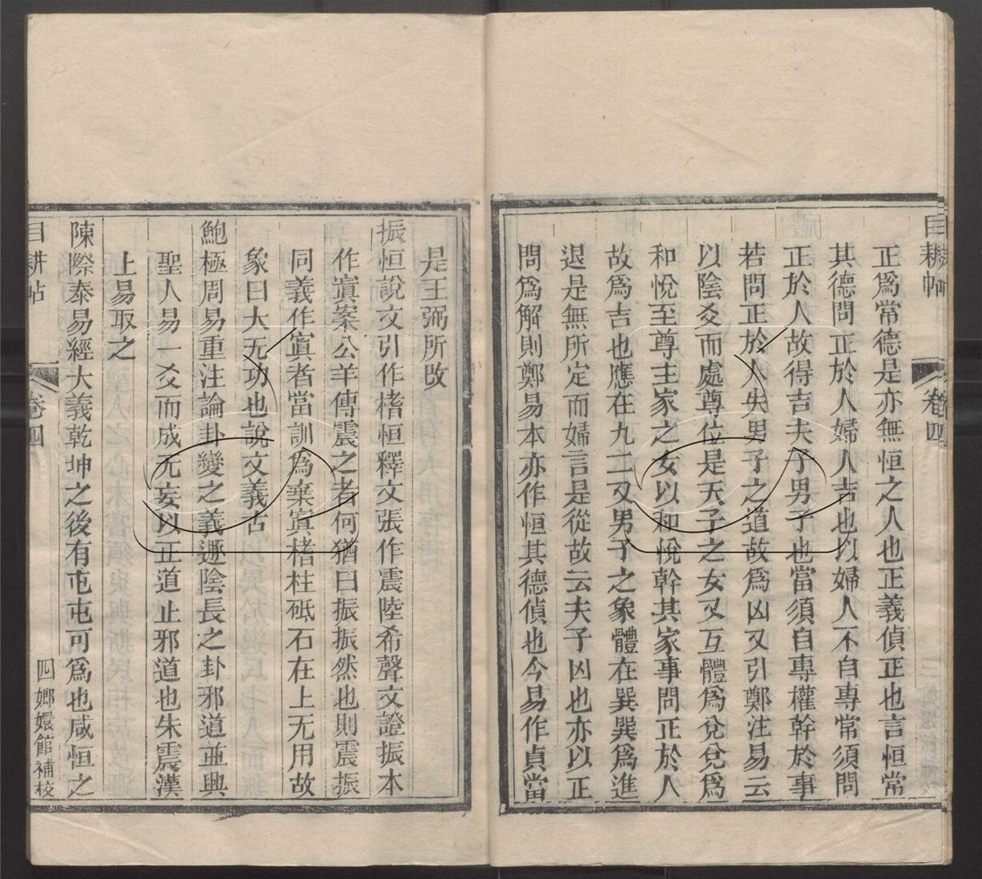 目耕帖
卷四
正爲常德是亦無恒之人也正義偵正也言恒常
其德問正於人婦人吉也以婦人不自專常須問
正於人故得吉夫子男子也當須自專權幹於事
若問正於人失男子之道故爲凶又引鄭注易云
以陰爻而處尊位是天子之女又互體爲兌兌爲
和悅至尊主家之女以和悅幹其家事問正於人
故爲吉也應在九二又男子之象體在巽巽爲進
退是無所定而婦言是從故云夫子凶也亦以正
問爲解則鄭易本亦作恒其德偵也今易作貞當
是王弼所改
振恒說文引作榰恒釋文張作震陸希聲文證振本
作𡪢案公羊傳震之者何猶曰振振然也則震振
同義作𡪢者當訓爲棄𡪢榰柱砥石在上无用故
象曰大无功也說文義古
鮑極周易重注論卦變之義遯陰長之卦邪道並興
聖人易一爻而成无妄以正道止邪道也朱震漢
上易取之
陳際泰易經大義乾坤之後有屯屯可爲也咸恒之
目耕帖
卷四
四
嫏嬛館補校